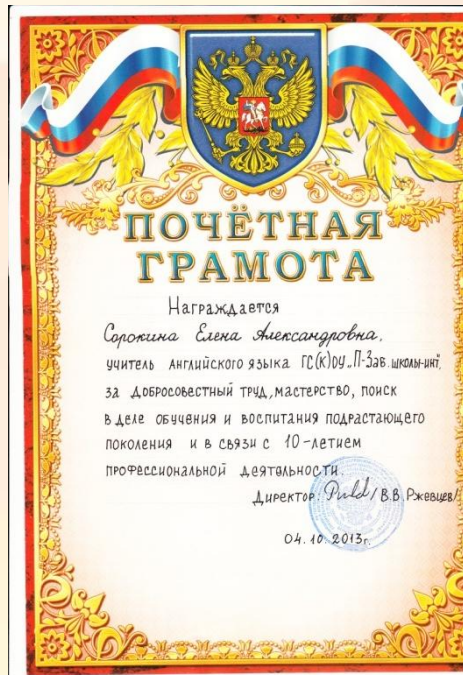 ПОЧЁТНАЯ
ГРАМОТА
Награждается
Сорокина Елена Александровна,
учитель английского языка ГС(К)ОУ „П-Заб. школы-инт",
за добросовестный труд, мастерство, поиск
в деле обучения и воспитания подрастающего
поколения и в связи с 10-летием
профессиональной деятельности.
Директор: /В.В. Ржевцев/
04.10.2013г.